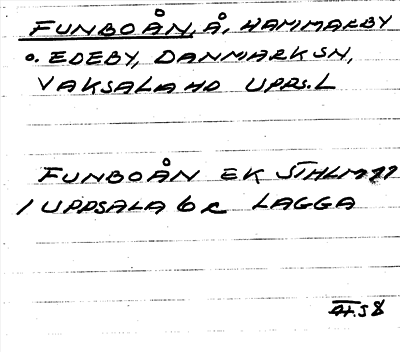 FUNBOÅN, Å, HAMMARBY
o. EDEBY, DANMARK SN,
VAKSALA HD UPPS. L
FUNBOÅN EK STHLM
/ UPPSALA 6 c LAGGA